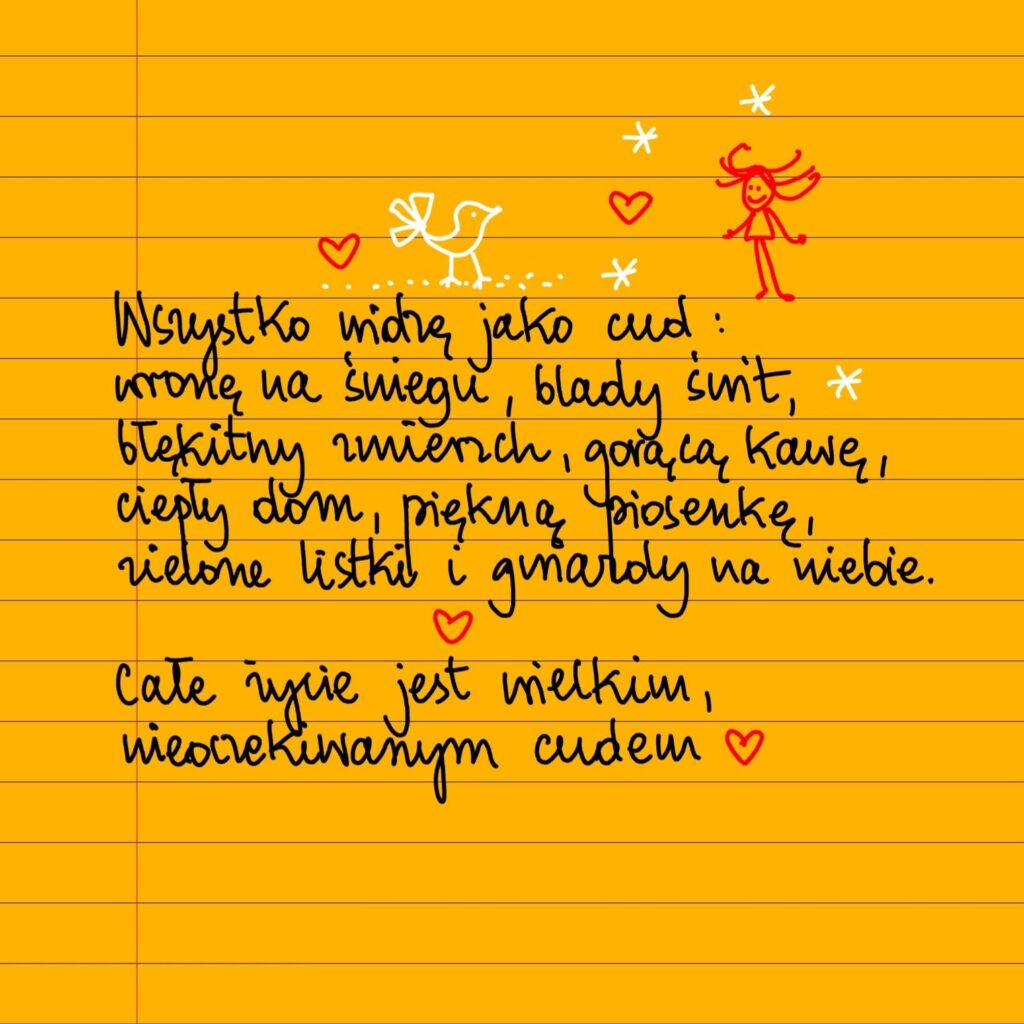 Wszystko widzę jako cud:
wronę na śniegu, blady świt,
błękitny zmierzch, gorącą kawę,
ciepły dom, piękną piosenkę,
zielone listki i gwiazdy na niebie.
Całe życie jest wielkim,
nieoczekiwanym cudem